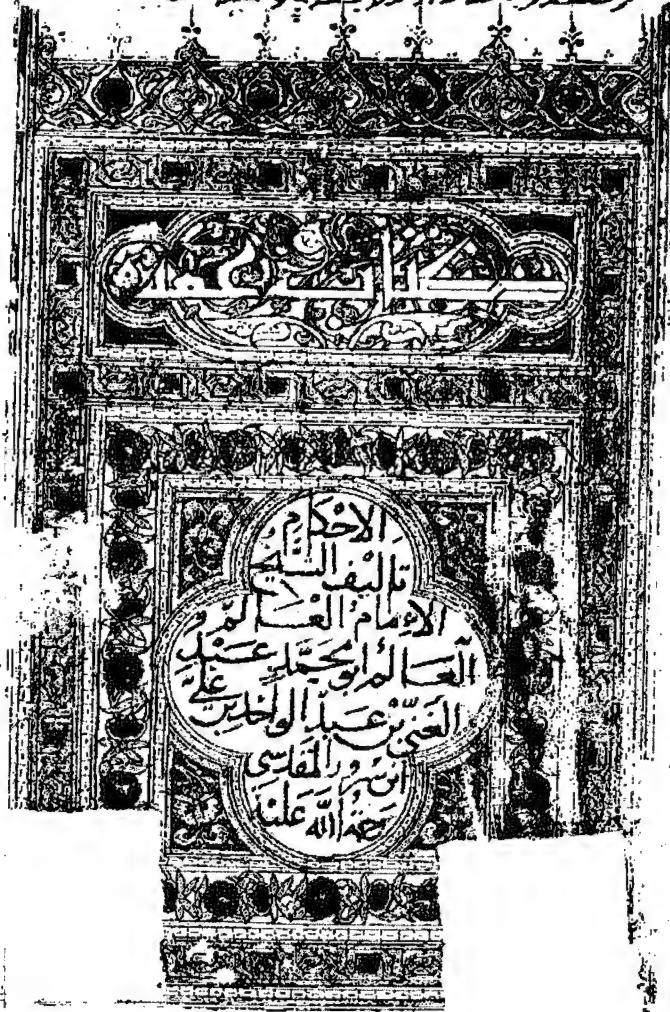 كتاب عمدة
الاحكام
تأليف الشيخ
الإمام العالم
العالم ابو محمد عبد
الغني بن عبد الواحد بن علي
ابن سرور المقدسي
رحمة الله عليه